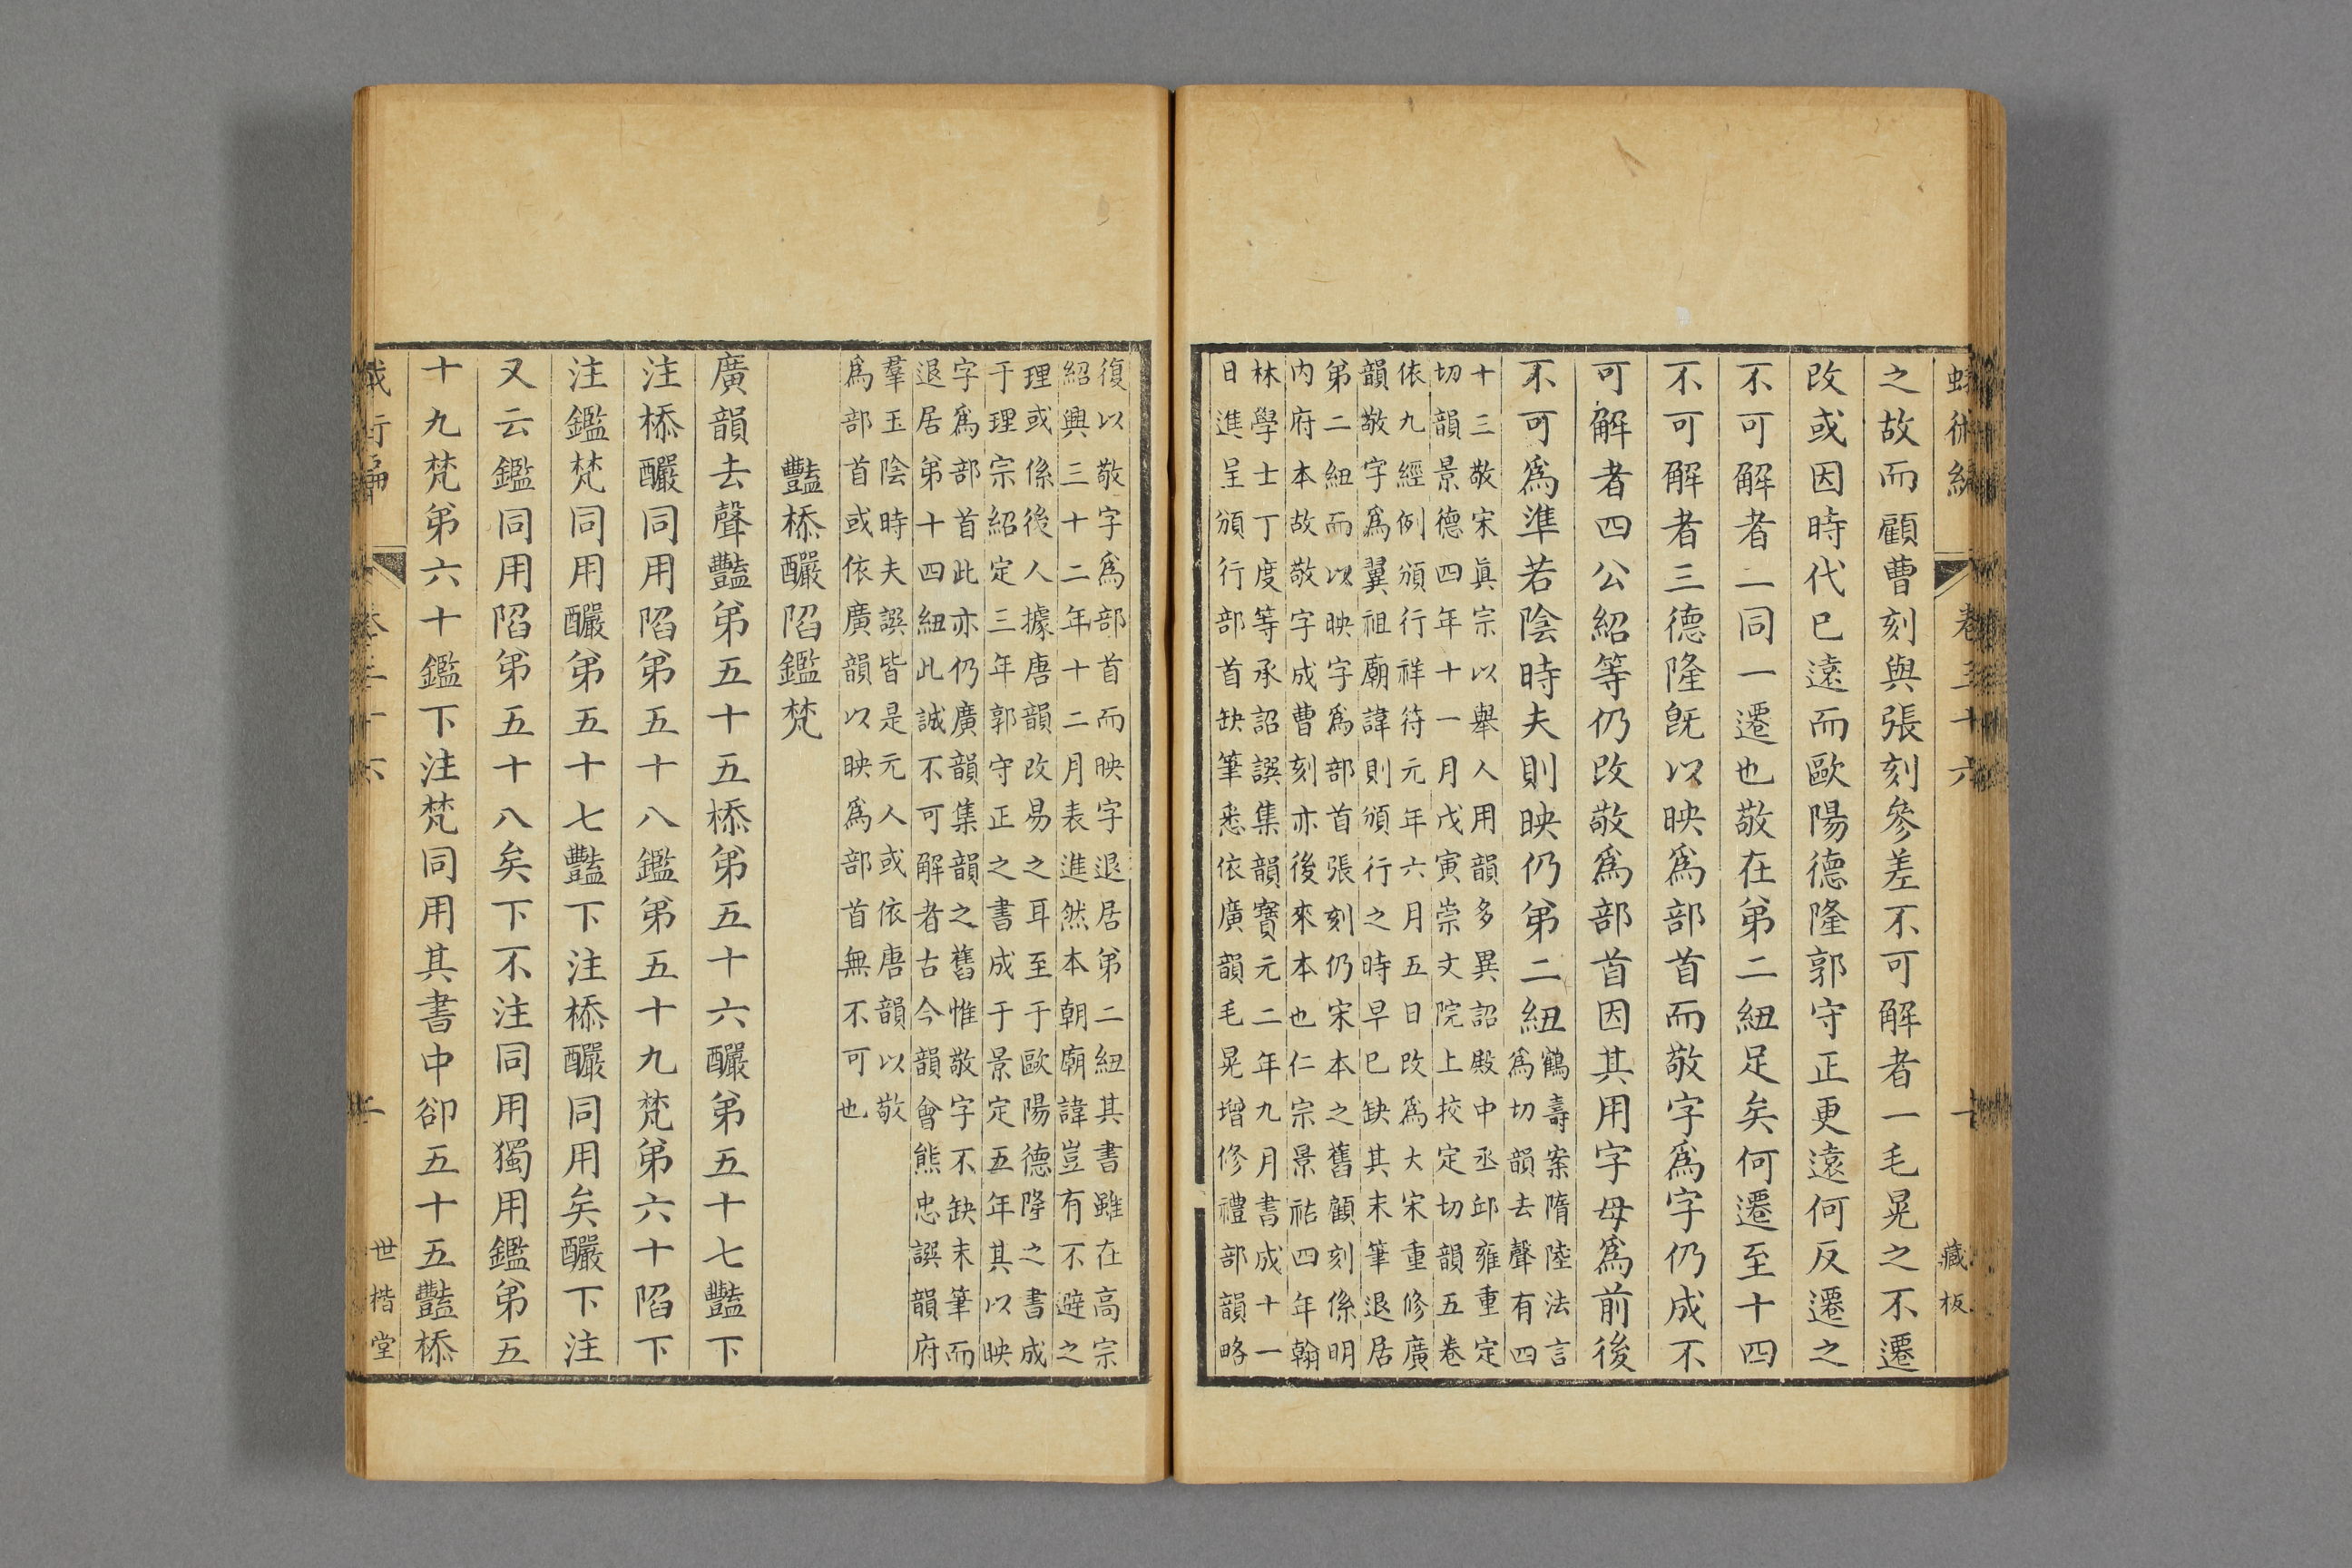 卷三十六
一
藏板
之故而顧曹刻與張刻參差不可解者一毛晃之不遷
改或因時代已遠而歐陽德隆郭守正更遠何反遷之
不可解者二同一遷也敬在第二紐足矣何遷至十四
不可解者三德隆旣以映爲部首而敬字爲字仍成不
可解者四公紹等仍改敬爲部首因其用字母爲前後
不可爲準若陰時夫則映仍第二紐
鶴壽案隋陸法言
爲切韻去聲有四
十三敬宋眞宗以舉人用韻多異詔殿中丞邱雍重定
切韻景德四年十一月戊寅崇文院上挍定切韻五卷
依九經例頒行祥符元年六月五日改爲大宋重修廣
韻敬字爲翼祖廟諱則頒行之時早已缺其末筆退居
第二紐而以映字爲部首張刻仍宋本之舊顧刻係明
內府本故敬字成曹刻亦後來本也仁宗景祐四年翰
林學士丁度等承詔譔集韻寶元二年九月書成十一
日進呈頒行部首缺筆悉依廣韻毛晃增修禮部韻略
復以敬字爲部首而映字退居第二紐其書雖在高宗
紹興三十二年十二月表進然本朝廟諱豈有不避之
理或係後人據唐韻改易之耳至于歐陽德隆之書成
于理宗紹定三年郭守正之書成于景定五年其以映
字爲部首此亦仍廣韻集韻之舊惟敬字不缺末筆而
退居第十四紐此誠不可解者古今韻會熊忠譔韻府
羣玉陰時夫譔皆是元人或依唐韻以敬
爲部首或依廣韻以映爲部首無不可也
豔㮇釅陷鑑梵
廣韻去聲豔第五十五㮇第五十六釅第五十七豔下
注㮇釅同用陷第五十八鑑第五十九梵第六十陷下
注鑑梵同用釅第五十七豔下注㮇釅同用矣釅下注
又云鑑同用陷第五十八矣下不注同用獨用鑑第五
十九梵第六十鑑下注梵同用其書中卻五十五豔㮇
世楷堂